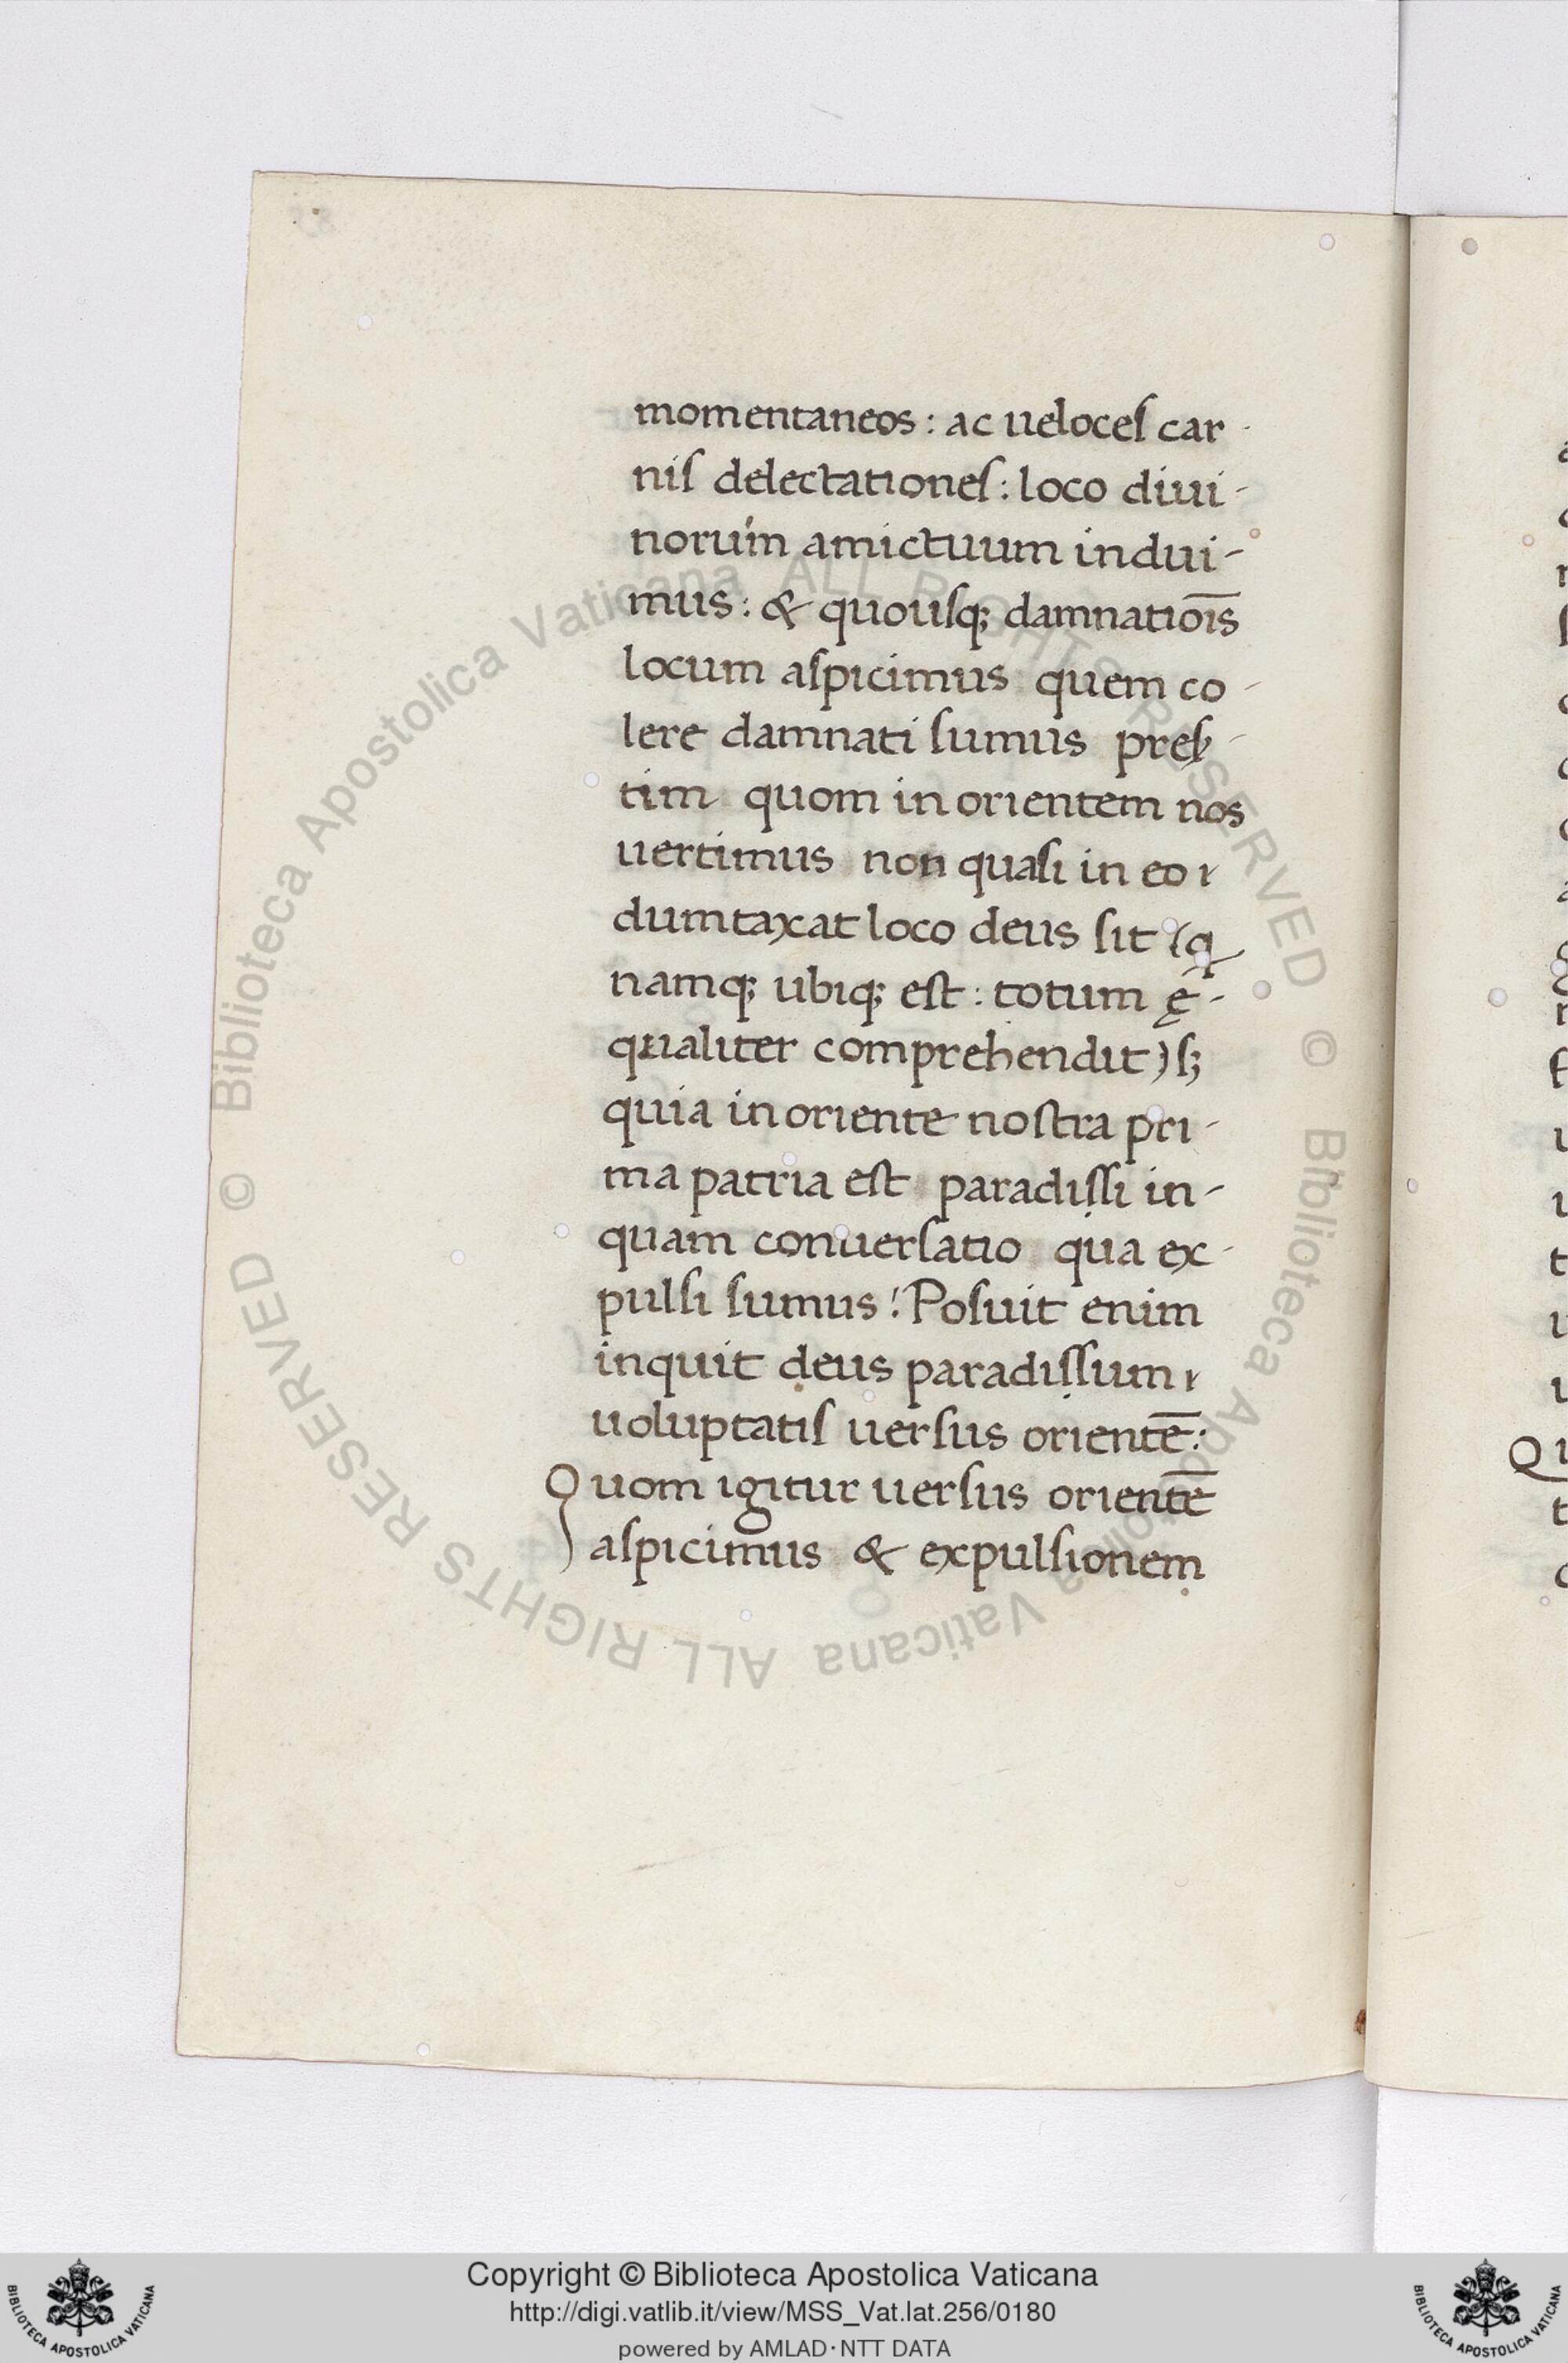 momentaneos : ac ueloceſ car -
niſ delectationeſ : loco diui -
norum amictuum indui -
mus : & quouſq; damnatio̅is
locum aſpicimus quem co -
lere damnati ſumus preſ -
tim quom in orientem nos
uertimus non quaſi in eo
dumtaxat loco deus ſit (q
namq; ubiq; eſt : totum ę -
qualiter comprehendit) ſ;
quia in oriente noſtra pri -
ma patria eſt paradiſſi in -
quam conuerſatio qua ex -
pulſi ſumus ! Poſuit enim
inquit deus paradiſſum
uoluptatiſ uerſus oriente̅ :
Quom igitur uerſus oriente̅
aſpicimus & expulſionem
Copyright © Biblioteca Apostolica Vaticana
http://digi.vatlib.it/view/MSS_Vat.lat.256/0180
powered by AMLAD · NTT DATA
BIBLIOTECA APOSTOLICA VATICANA
BIBLIOTECA APOSTOLICA VATICANA
© Biblioteca Apostolica Vaticana ALL RIGHTS RESERVED © Biblioteca Apostolica Vaticana ALL RIGHTS RESERVED